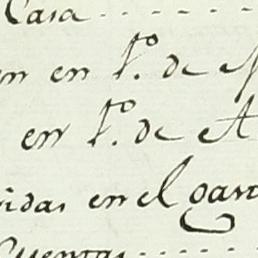 Casa - - - - - -
en 1.º de
en 1.º de A
vidas en el
Cuentas - - - -